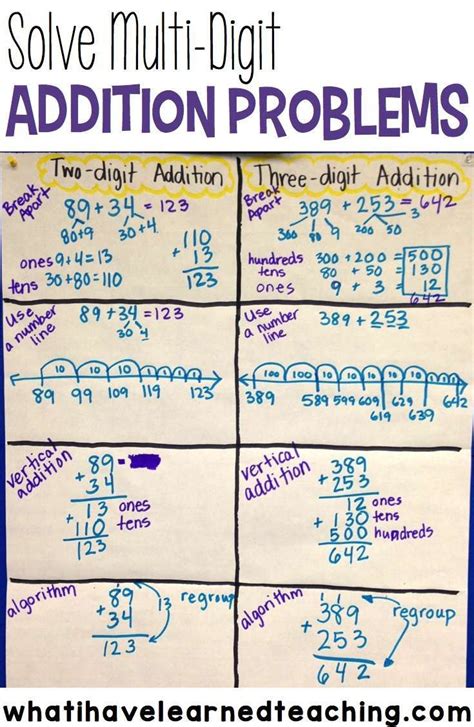 Solve Multi-Digit
ADDITION PROBLEMS
Two-digit Addition
Break Apart
89 + 34 = 123
80+9 30+4
ones 9 + 4 = 13
tens 30 + 80 = 110
110
+ 13
123
Three-digit Addition
Break Apart
389 + 253 = 642
300 80 9 200 50 3
hundreds 300 + 200 = 500
tens 80 + 50 = 130
ones 9 + 3 = 12
642
Use a number line
89 + 34 = 123
30 4
10 10 10 1 1 1 1
89 99 109 119 123
Use a number line
389 + 253
100 100 10 10 10 10 10 1 1 1
389 589 599 609 619 629 639 642
vertical addition
89
+ 34
13 ones
+ 110 tens
123
vertical addition
389
+ 253
12 ones
+ 130 tens
500 hundreds
642
algorithm
1
89
+ 34
123
13 regroup
algorithm
1 1
389
+ 253
642
regroup
whatihavelearnedteaching.com